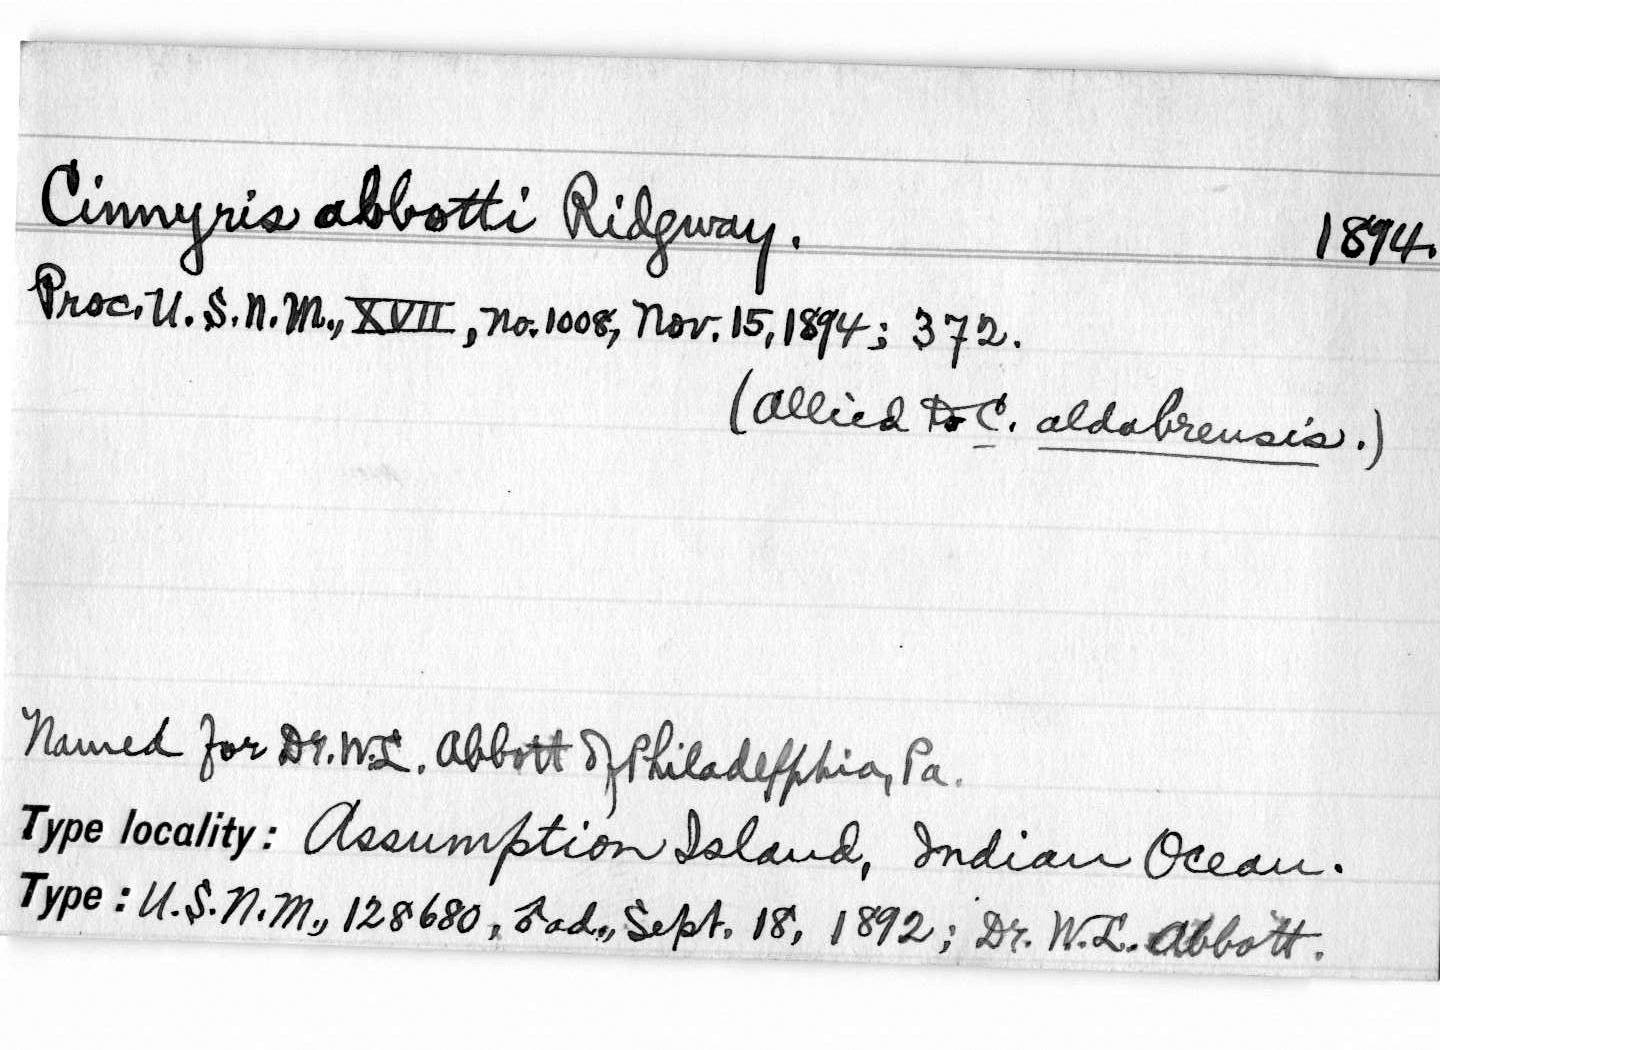 Cinnyris abbotti Ridgway. 1894.
Proc. U.S.N.M., XVII, no. 1008, Nov. 15, 1894; 372.
(Allied to C. aldabrensis.)
Named for Dr. W.L. Abbott of Philadelphia, Pa.
Type locality: Assumption Island, Indian Ocean.
Type: U.S.N.M., 128680, ♂ ad., Sept. 18, 1892; Dr. W.L. Abbott.